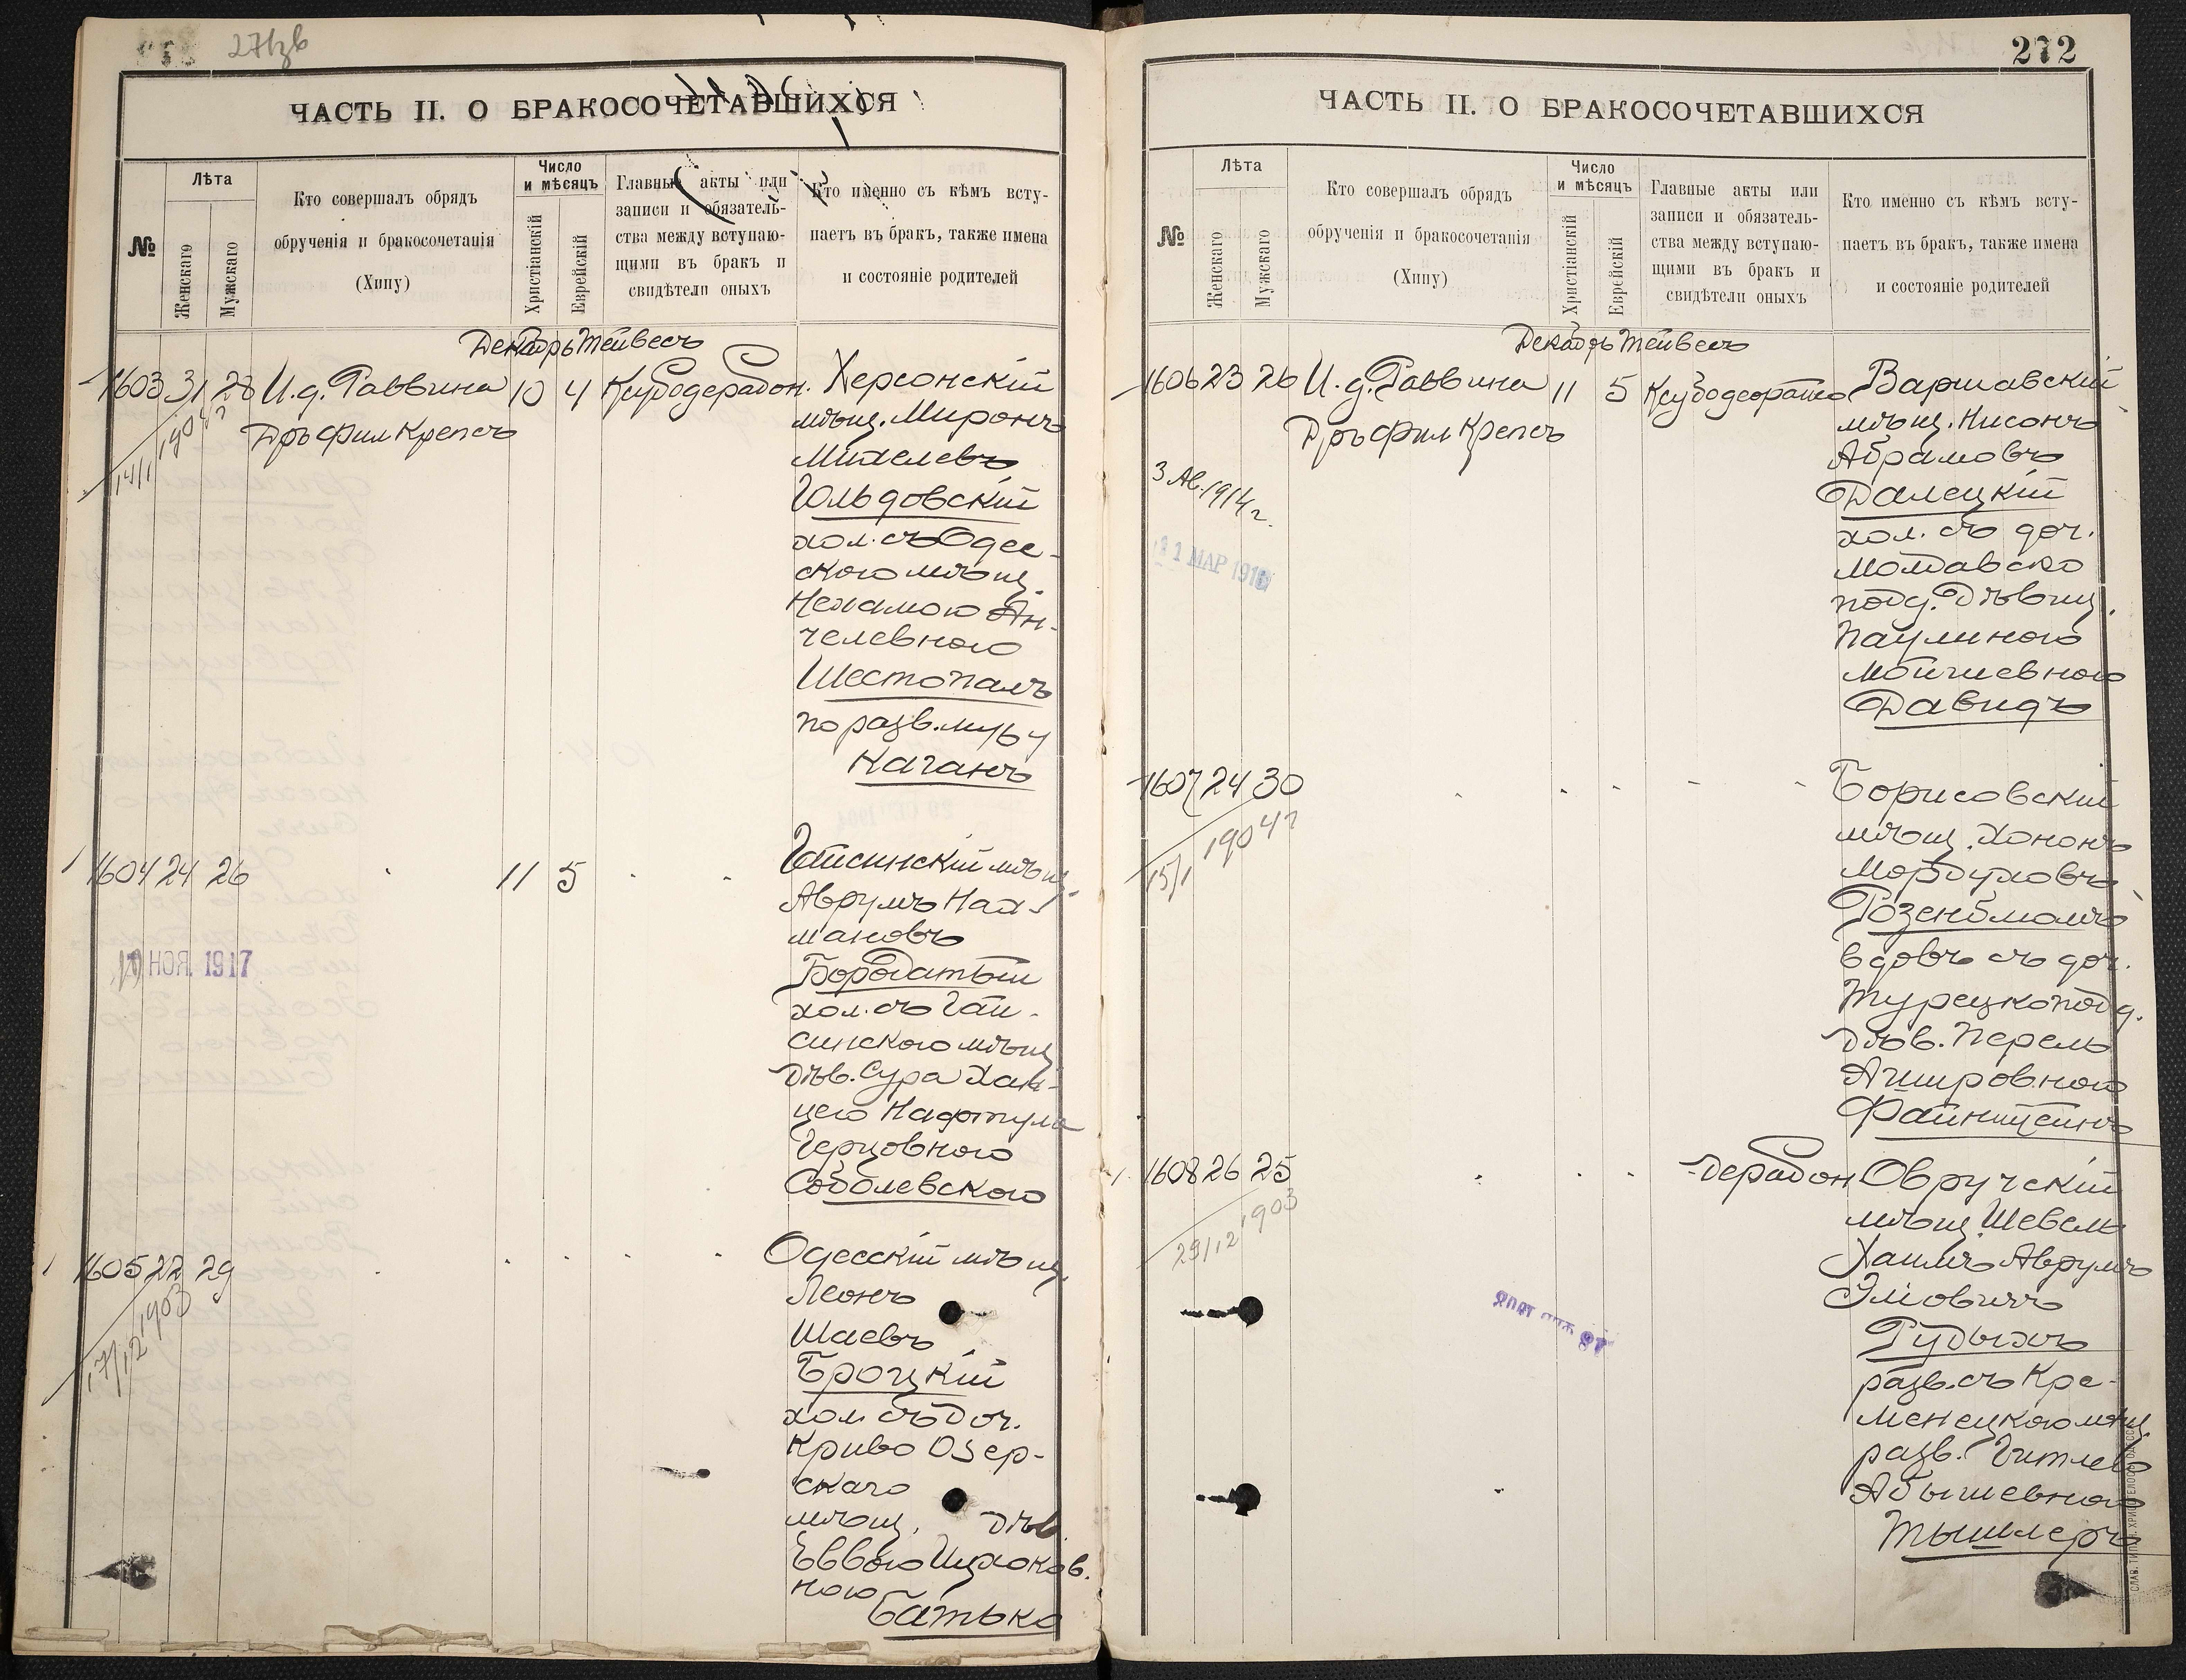 271зв
ЧАСТЬ II. О БРАКОСОЧЕТАВШИХСЯ
№
Лѣта
Женскаго
Мужскаго
Кто совершалъ обрядъ
обрученія и бракосочетанія
(Хипу)
Число
и мѣсяцъ
Христіанскій
Еврейскій
Главные акты или
записи и обязатель-
ства между вступаю-
щими въ бракъ и
свидѣтели оныхъ
Кто именно съ кѣмъ всту-
паетъ въ бракъ, также имена
и состояніе родителей
Декабрь Тейвесъ
1603 31 28 И.д. Раввина 10 4 Ксубодерабон. Херсонскій
Дръ Фил Крепсъ
14/1 1904 г
мѣщ. Миронъ
Михелевъ
Гольдовскій
хол. съ Одес-
скою мѣщ.
Нехамою Ан-
челевною
Шестопалъ
по разв. мужу
Каганъ
1604 24 26 11 5 Гайсинскій мѣщ.
Аврумъ Нах-
мановъ
19 НОЯ. 1917
Бородатый
хол. съ Гай-
синскою мѣщ
дѣв. Сура Хай-
цею Нафтула
Герцовною
Соболевскою
1605 22 29 Одесскій мѣщ.
17/12 1903
Леонъ
Шаевъ
Броцкій
хол съ доч.
Криво Озер-
скаго
мѣщ. дѣв.
Еввою Ицхоков.
ною
Батько
272
ЧАСТЬ II. О БРАКОСОЧЕТАВШИХСЯ
№
Лѣта
Женскаго
Мужскаго
Кто совершалъ обрядъ
обрученія и бракосочетанія
(Хипу)
Число
и мѣсяцъ
Христіанскій
Еврейскій
Главные акты или
записи и обязатель-
ства между вступаю-
щими въ бракъ и
свидѣтели оныхъ
Кто именно съ кѣмъ всту-
паетъ въ бракъ, также имена
и состояніе родителей
Декабрь Тейвесъ
1606 23 26 И.д. Раввина 11 5 Варшавскій
Дръ Фил Крепсъ
мѣщ. Нисонъ
Абрамовъ
3 Ав. 1914 г.
Далецкій
хол. съ доч.
МАР
Молдавско
подд. Дѣвиц.
Паулиною
Мойшевною
Давидъ
1607 24 30 Борисовскій
15/1 1904 г
мѣщ. Хононъ
Мордуховъ
Розенблюмъ
вдовъ съ доч.
Турецкоподд.
дѣв. Перель
Аншровною
Файнштейнъ
1608 26 25 дерабон Овручскій
29/12 1903
мѣщ. Шевель
Хаимъ Аврумъ
Эліовичъ
Рудыхъ
разв. съ Кре-
менецкою мѣщ.
разв. Гитлею
Абышевною
Тышлеръ